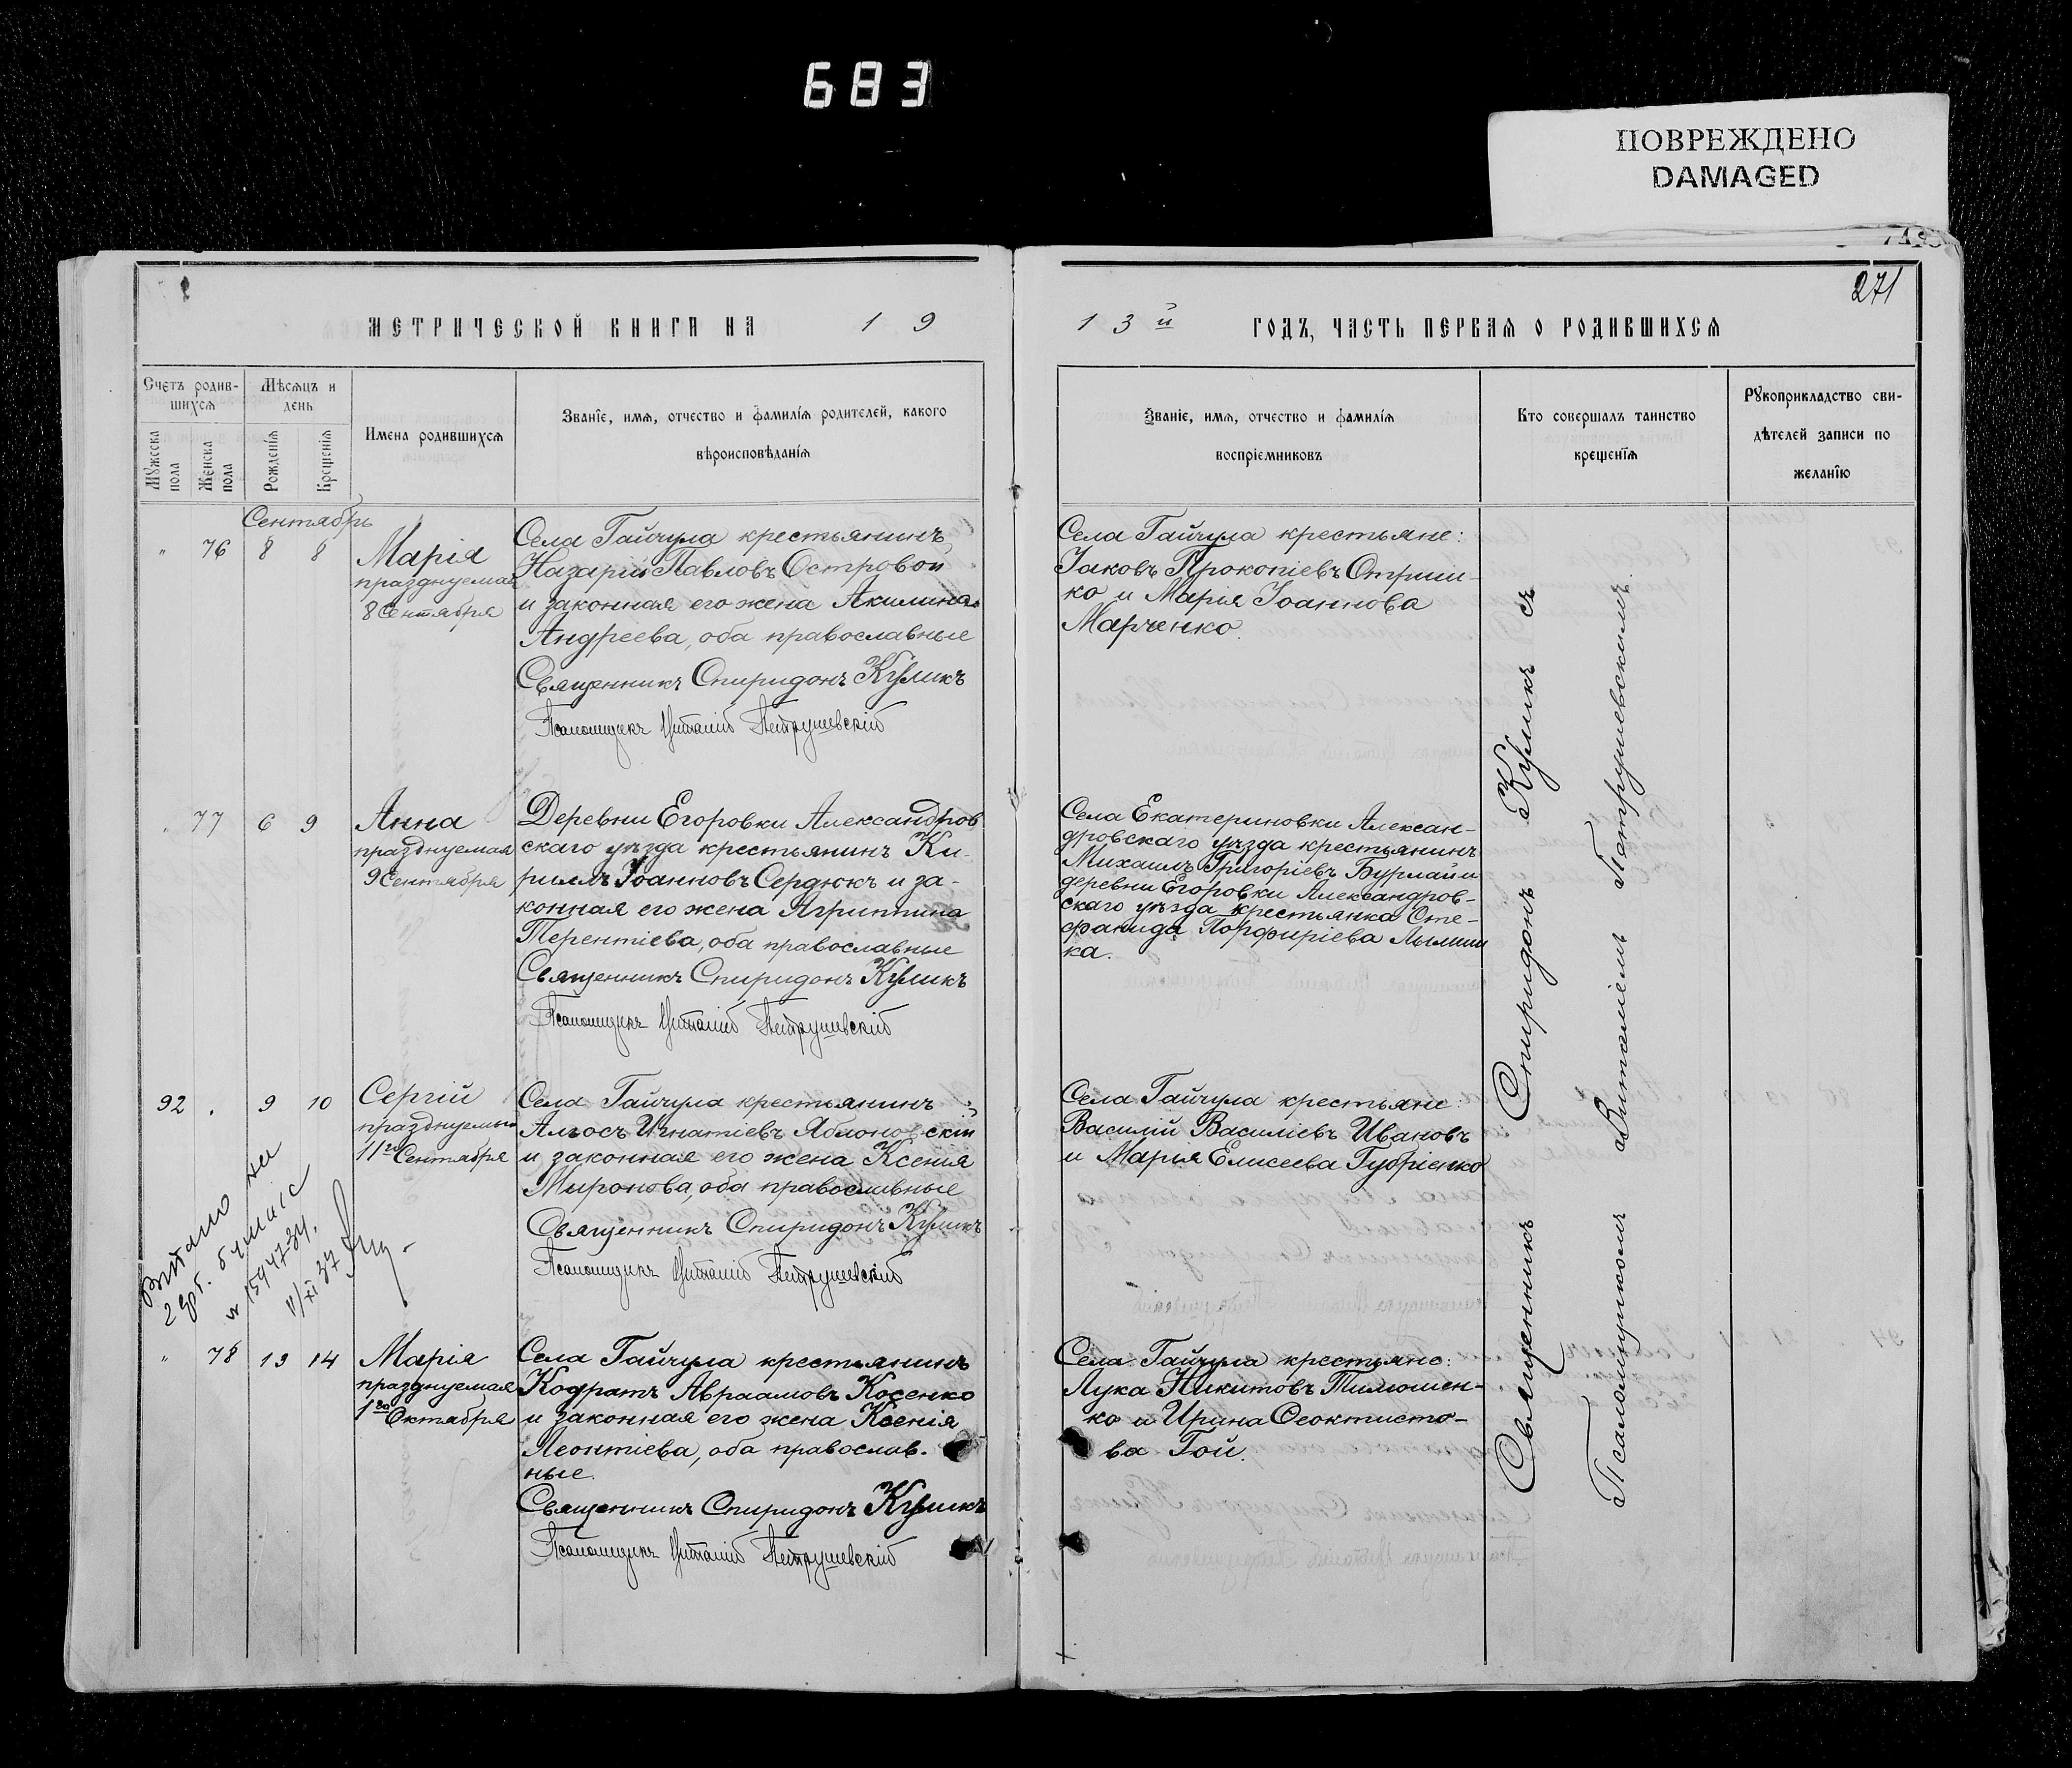 683
ПОВРЕЖДЕНО
DAMAGED
271
МЕТРИЧЕСКОЙ КНИГИ НА 19
13й ГОДЪ, ЧАСТЬ ПЕРВАЯ О РОДИВШИХСЯ
Счетъ родив-
шихся
Мужеска
пола
Женска
пола
Мѣсяцъ и
день
Рожденія
Крещенія
Имена родившихся
Званіе, имя, отчество и фамилія родителей, какого
вѣроисповѣданія
Званіе, имя, отчество и фамилія
воспріемниковъ
Кто совершалъ таинство
крещенія
Рукоприкладство сви-
дѣтелей записи по
желанію
Сентябрь
" 76 8 8
Марія
празднуемая
8 Сентября
Села Гайчула крестьянинъ
Назарій Павловъ Островой
и законная его жена Акилина
Андреева, оба православные
Священникъ Спиридонъ Куликъ
Псаломщикъ Виталій Петрушевскій
Села Гайчула крестьяне:
Іаковъ Прокопіевъ
и Марія Іоаннова
Марченко.
77 6 9
Анна
празднуемая
9 Сентября
Деревни Егоровки Александров
скаго уѣзда крестьянинъ Ки-
риллъ Іоанновъ Сердюкъ и за-
конная его жена Агриппина
Терентіева, оба православные
Священникъ Спиридонъ Куликъ
Псаломщикъ Виталій Петрушевскій
Села Екатериновки Алексан-
дровскаго уѣзда крестьянинъ
Михаилъ Григоріевъ Бурлай и
деревни Егоровки Александров-
скаго уѣзда крестьянка Сте-
фанида Порфиріева
92 . 9 10
Сергій
празднуемый
11го Сентября
Села Гайчула крестьянинъ
Игнатіевъ Яблоновскій
и законная его жена Ксенія
Миронова, оба православные
Священникъ Спиридонъ Куликъ
Псаломщикъ Виталій Петрушевскій
Села Гайчула крестьяне:
Василій Василіевъ Ивановъ
и Марія Елисеева Губріенко
на
бумазі
11/XI 37
" 78 13 14
Марія
празднуемая
1го Октября
Села Гайчула крестьянинъ
Кодратъ Авраамовъ Косенко
и законная его жена Ксенія
Леонтіева, оба православ-
ные.
Священникъ Спиридонъ Куликъ
Псаломщикъ Виталій Петрушевскій
Села Гайчула крестьяне:
Лука Никитовъ Тимошен-
ко и Ирина Феоктисто-
ва Гой.
Священникъ Спиридонъ Куликъ съ
Псаломщикомъ Виталіемъ Петрушевскимъ.